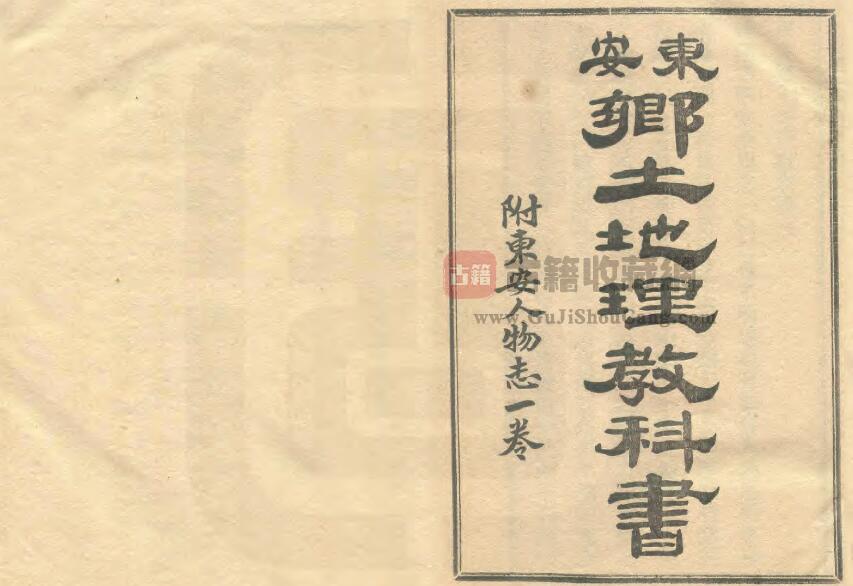 東安
鄉土地理教科書
附東安人物志一卷
古籍 古籍收藏網
www.GuJiShouCang.com